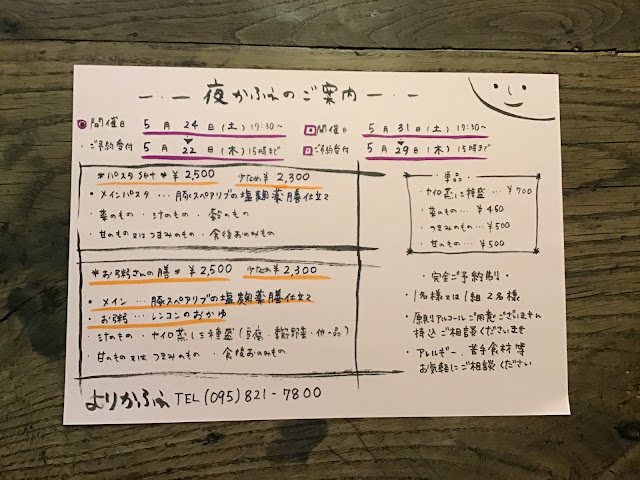 夜かふぇのご案内
開催日 5月24日(土)17:30〜
・ご予約受付 5月22日(木)15時まで
開催日 5月31日(土)17:30〜
ご予約受付 5月29日(木)15時まで
*パスタset* ¥2,300 少なめ ¥2,300
・メインパスタ…豚スペアリブの塩麹薬膳仕立て
・菜のもの・汁のもの・穀のもの
・甘のもの又はつまみのもの・食後おのみもの
*お粥さんの膳* ¥2,500 少なめ ¥2,300
・メイン…豚スペアリブの塩麹薬膳仕立て
・お粥…レンコンのおかゆ
・汁のもの・セイロ蒸し三種盛(豆腐・季節野菜・他一品)
・甘のもの又はつまみのもの・食後おのみもの
よりかふぇ TEL(095)821-7800
・単品・
・セイロ蒸し三種盛…¥700
・菜のもの…¥450
・つまみのもの…¥500
・甘のもの…¥500
・完全ご予約制・
・1名様又は1組2名様
・原則アルコールご用意ございません
持込ご相談くださいませ
・アレルギー、苦手食材等
お気軽にご相談ください